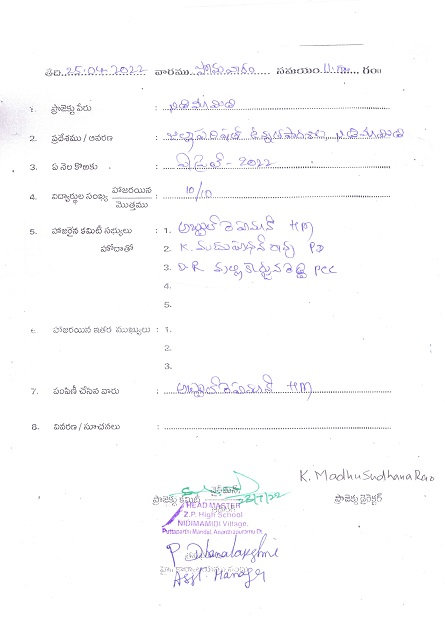 తేది. 25.04.2022 వారము సోమవారం సమయం 11 గం॥
1. ప్రాజెక్టు పేరు : నిడిమామిడి
2. ప్రదేశము / ఆవరణ : జిల్లాపరిషత్ ఉన్నతపాఠశాల నిడిమామిడి
3. ఏ నెల కొఱకు : ఏప్రిల్ - 2022
4. విద్యార్థుల సంఖ్య హాజరయిన / మొత్తము : 10/10
5. హాజరైన కమిటీ సభ్యులు : 1. HM
హోదాతో 2. K. మధుసూధన్ రావు PD
3. D.R మల్లికార్జునరెడ్డి PCC
4.
5.
6. హాజరయిన ఇతర ముఖ్యులు : 1.
2.
3.
7. పంపిణీ చేసిన వారు : HM
8. వివరణ / సూచనలు :
K. MadhuSudhana Rao
ప్రాజెక్టు కమిటీ చైర్మన్
ప్రాజెక్టు డైరెక్టర్
HEAD MASTER
Z.P. High School
NIDIMAMIDI Village,
Puttaparthi Mandal, Ananthapuramu Dt.
P. Dhanalakshmi
Asst. Manager